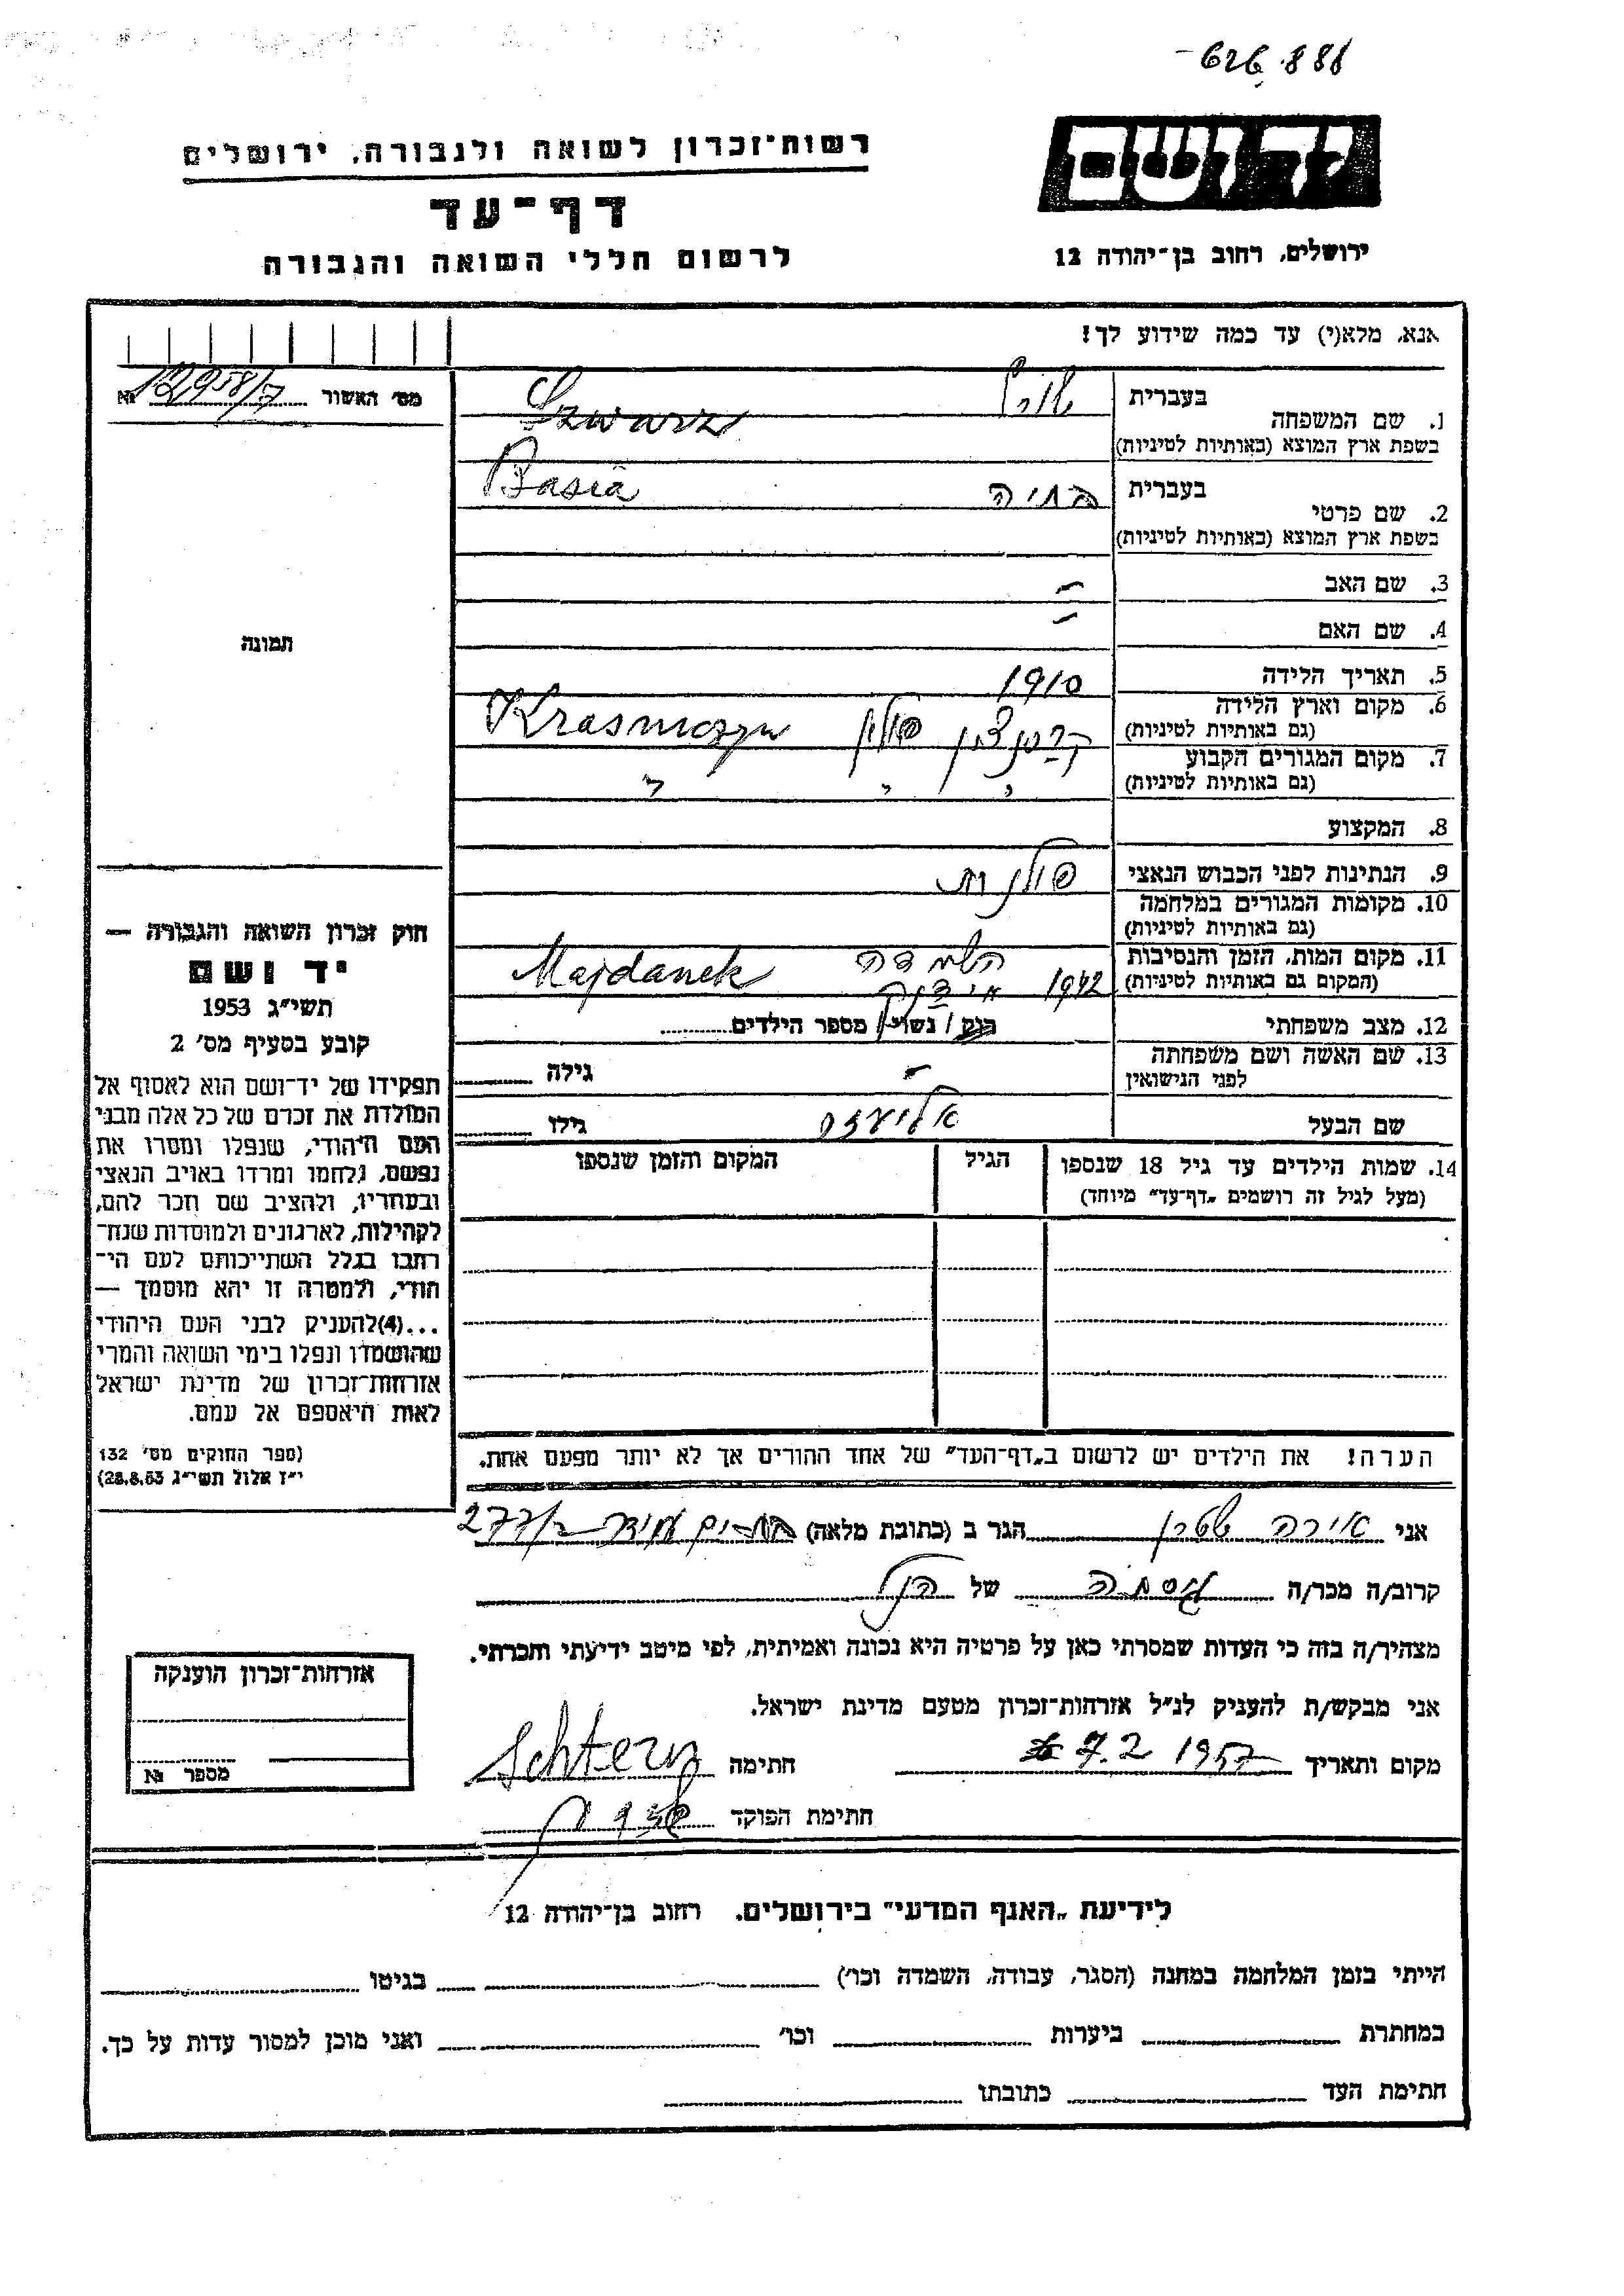 626.888
יד ושם
ירושלים, רחוב בן־יהודה 12
רשות־זכרון לשואה ולגבורה, ירושלים
דף־עד
לרשום חללי השואה והגבורה
אנא, מלא(י) עד כמה שידוע לך!
1. שם המשפחה
בעברית
בשפת ארץ המוצא (באותיות לטיניות)
Szwarz
2. שם פרטי
בעברית בתיה
Basia
בשפת ארץ המוצא (באותיות לטיניות)
3. שם האב –
4. שם האם –
5. תאריך הלידה 1910
6. מקום וארץ הלידה
(גם באותיות לטיניות)
פולין Krasniczyn
7. מקום המגורים הקבוע
(גם באותיות לטיניות)
8. המקצוע
9. הנתינות לפני הכבוש הנאצי פולנית
10. מקומות המגורים במלחמה
(גם באותיות לטיניות)
11. מקום המות, הזמן והנסיבות
(המקום גם באותיות לטיניות)
1942 השמדה Majdanek
12. מצב משפחתי רווק / נשוי / מספר הילדים
13. שם האשה ושם משפחתה
לפני הנישואין – גילה
שם הבעל אליעזר גילו
14. שמות הילדים עד גיל 18 שנספו
(מעל לגיל זה רושמים „דף־עד״ מיוחד)
הגיל
המקום והזמן שנספו
הערה! את הילדים יש לרשום ב„דף־העד״ של אחד ההורים אך לא יותר מפעם אחת.
מס׳ האשור 12958/7 №
תמונה
חוק זכרון השואה והגבורה —
יד ושם
תשי״ג 1953
קובע בסעיף מס׳ 2
תפקידו של יד־ושם הוא לאסוף אל
המולדת את זכרם של כל אלה מבני
העם היהודי, שנפלו ומסרו את
נפשם, נלחמו ומרדו באויב הנאצי
ובעוזריו, ולהציב שם וזכר להם,
לקהילות, לארגונים ולמוסדות שנח־
רבו בגלל השתייכותם לעם הי־
הודי, ולמטרה זו יהא מוסמך —
...(4)להעניק לבני העם היהודי
שהושמדו ונפלו בימי השואה והמרי
אזרחות־זכרון של מדינת ישראל
לאות היאספם אל עמם.
(ספר החוקים מס׳ 132
י״ז אלול תשי״ג 28.8.53)
אני אירה שטרן הגר ב (כתובת מלאה)
קרוב/ה מכר/ה גיסה של הנ״ל
מצהיר/ה בזה כי העדות שמסרתי כאן על פרטיה היא נכונה ואמיתית, לפי מיטב ידיעתי והכרתי.
אני מבקש/ת להעניק לנ״ל אזרחות־זכרון מטעם מדינת ישראל.
מקום ותאריך 7.2 1957 חתימה Schtern
חתימת הפוקד
אזרחות־זכרון הוענקה
מספר №
לידיעת „האגף המדעי״ בירושלים, רחוב בן־יהודה 12
הייתי בזמן המלחמה במחנה (הסגר, עבודה, השמדה וכו׳) בגיטו
במחתרת ביערות וכו׳ ואני מוכן למסור עדות על כך.
חתימת העד כתובתו